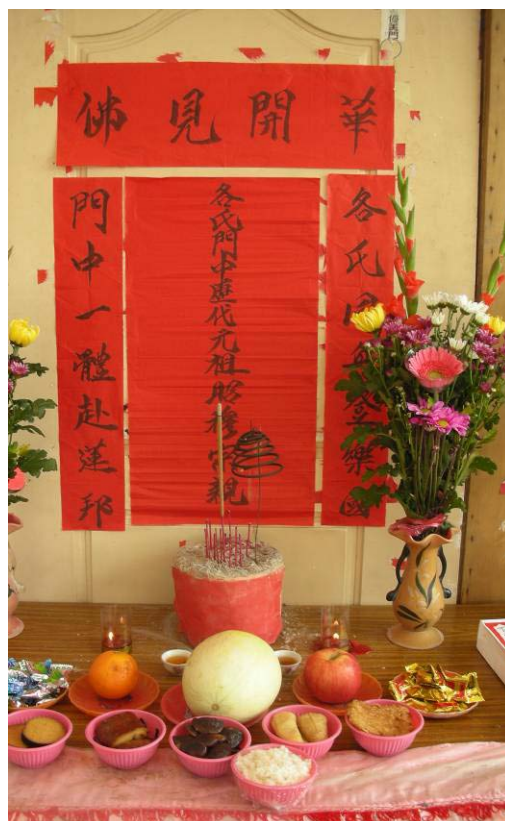 華開見佛
各氏登樂國
各氏門中歷代元祖昭穆宗親
門中一體赴蓮邦